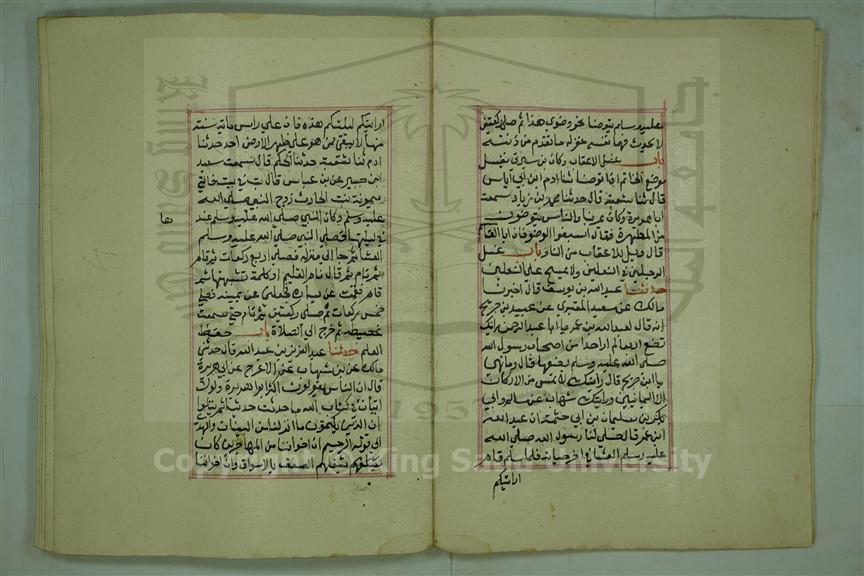 عليه وسلم يتوضا نحو وضوي هذا ثم صلى ركعتين
لا يحدث فيهما نفسه غفر له ما تقدم من ذنبه
باب غسل الاعقاب وكان بن سيرين يغسل
موضع الخاتم اذا توضا ثنا ادم ابن ابي اياس
قال ثنا شعبة قال حدثنا محمد بن زياد سمعت
ابا هريرة وكان يمر بنا والناس يتوضون
من المطهرة فقال اسبغوا الوضو فان ابا القاسم
قال ويل للاعقاب من النار باب غسل
الرجلين في النعلين ولا يمسح على النعلين
حدثنا عبد الله بن يوسف قال اخبرنا
مالك عن سعيد المقبري عن عبيد بن جريج
انه قال لعبد الله بن عمر يا ابا عبد الرحمن رايتك
تصنع اربعا لم ار احدا من اصحاب رسول الله
صلى الله عليه وسلم يصنعها قال وما هي
يا ابن جريج قال رايتك لا تمس من الاركان
الا اليمانيين ورايتك شهاب عن سالم وابي
بكر بن سليمان بن ابي حثمة ان عبد الله
ابن عمر قال صلى لنا رسول الله صلى الله
عليه وسلم العشا في اخر حياته فلما سلم قام
ارايتكم
ارايتكم ليلتكم هذه فان على راس ماية سنة
منها لا يبقى ممن هو على ظهر الارض احد حدثنا
ادم ثنا شعبة حدثنا الحكم قال سمعت سعيد
ابن جبير عن بن عباس قال بت في بيت خالتي
ميمونة بنت الحارث زوج النبي صلى الله
عليه وسلم وكان النبي صلى الله عليه وسلم عندها
في ليلتها فصلى النبي صلى الله عليه وسلم
العشا ثم جا الى منزله فصلى اربع ركعات ثم نام
ثم قام ثم قال نام الغليم او كلمة تشبهها ثم
قام فقمت عن يساره فجعلني عن يمينه فصلى
خمس ركعات ثم صلى ركعتين ثم نام حتى سمعت
غطيطه ثم خرج الى الصلاة باب حفظ
العلم حدثنا عبد العزيز بن عبد الله قال حدثني
مالك عن بن شهاب عن الاعرج عن ابي هريرة
قال ان الناس يقولون اكثر ابو هريرة ولولا
ايتان في كتاب الله ما حدثت حديثا ثم يتلوا
ان الذين يكتمون ما انزلنا من البينات والهدى
الى قوله الرحيم ان اخواننا من المهاجرين كان
يشغلهم الصفق بالاسواق وان اخواننا
Copyright © King Saud University
1957